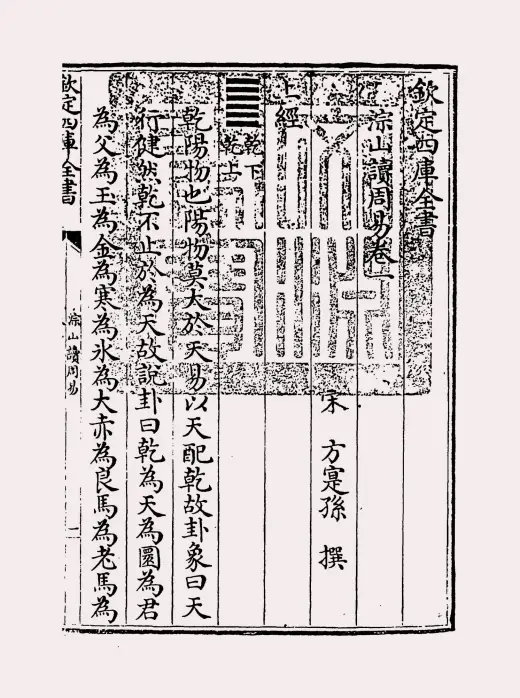 欽定四庫全書
淙山讀周易卷一
宋 方寔孫 撰
上經
乾下
乾上
乾陽物也陽物莫大於天易以天配乾故卦象曰天
行健然乾不止於為天故說卦曰乾為天為圜為君
為父為玉為金為寒為氷為大赤為良馬為老馬為
欽定四庫全書
淙山讀周易
一